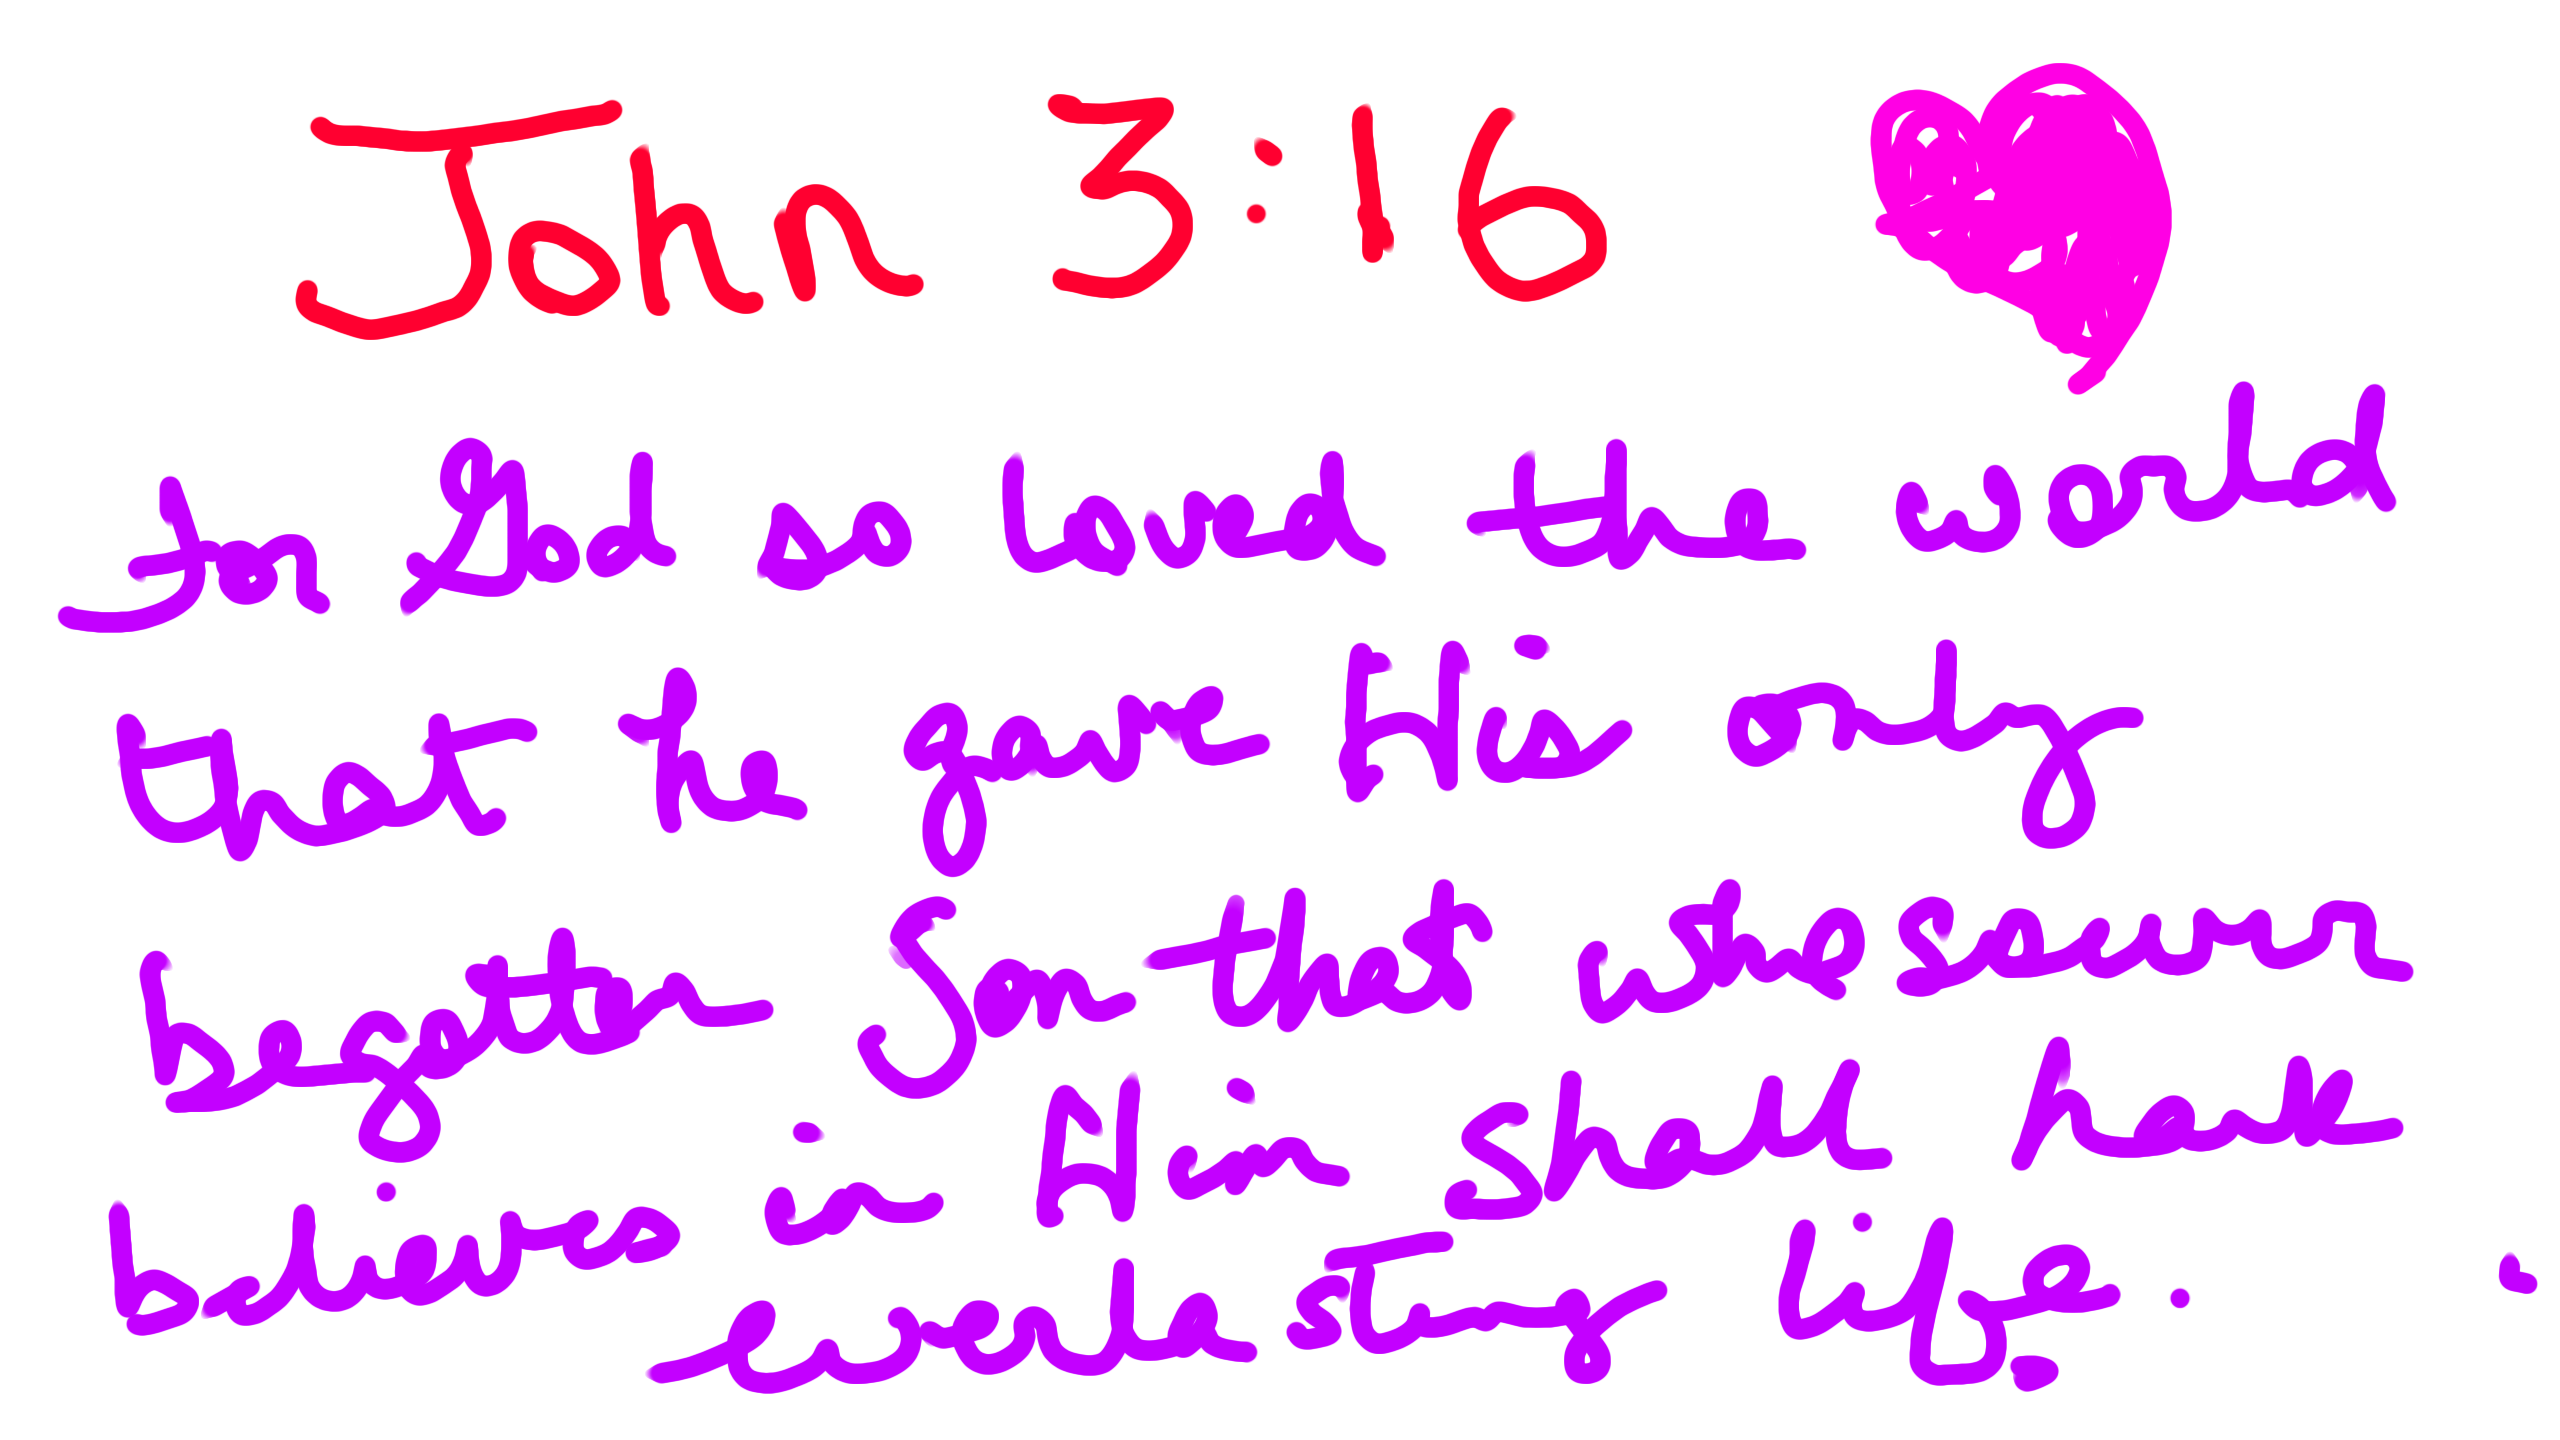 John 3:16
for God so loved the world
that he gave His only
begotten Son that whosoever
believes in Him shall have
everlasting life.